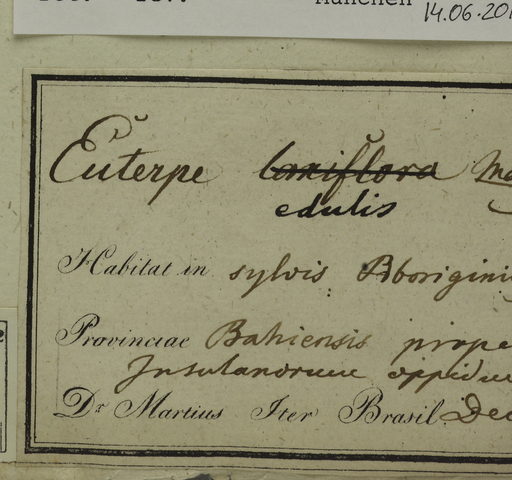 München
14.06.20
Euterpe
edulis
Habitat in sylvis Aborigini
Provinciae Bahiensis prope
Insulanorum oppidum
Dr Martius Iter Brasil. Dec